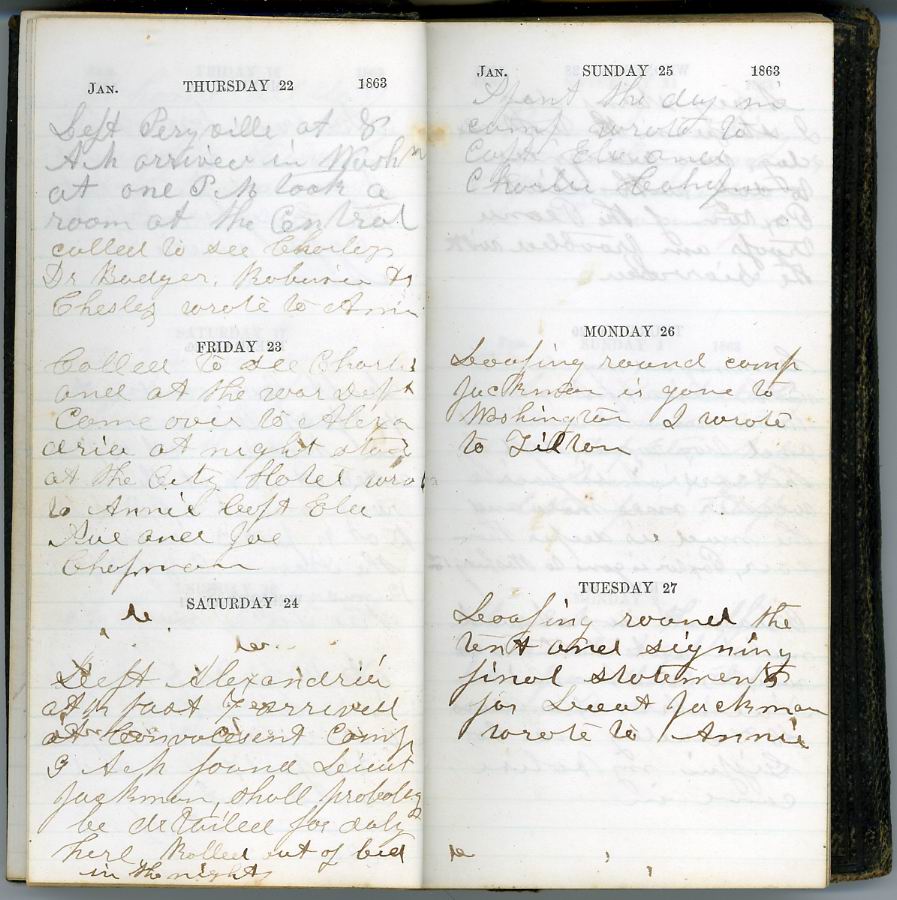 JAN. THURSDAY 22 1863
Left Peryville at 8
A M arrived in Washn
at one P. M took a
room at the Central
called to see Charley
Dr Badger, Robinie &
Chesley wrote to Anni
FRIDAY 23
Called to see Charles
and at the war Dept
Came over to Alexa
dria at night stoped
at the City Hotel wrote
to Annie Left
and Joe
Chapman
SATURDAY 24
Left Alexandria
at ½ past 7 arrived
at Convalesent Camp
9 A M found Leiut
Jackman, shall probably
be detailed for duty
here Rolled out of bed
in the night
JAN. SUNDAY 25 1863
Spent the day in
camp wrote to
Capt
Charlie
MONDAY 26
Loafing round camp
Jackman is gone to
Washington I wrote
to Tilton
TUESDAY 27
Loafing round the
tent and signing
final statements
for Leeut Jackman
wrote to Annie